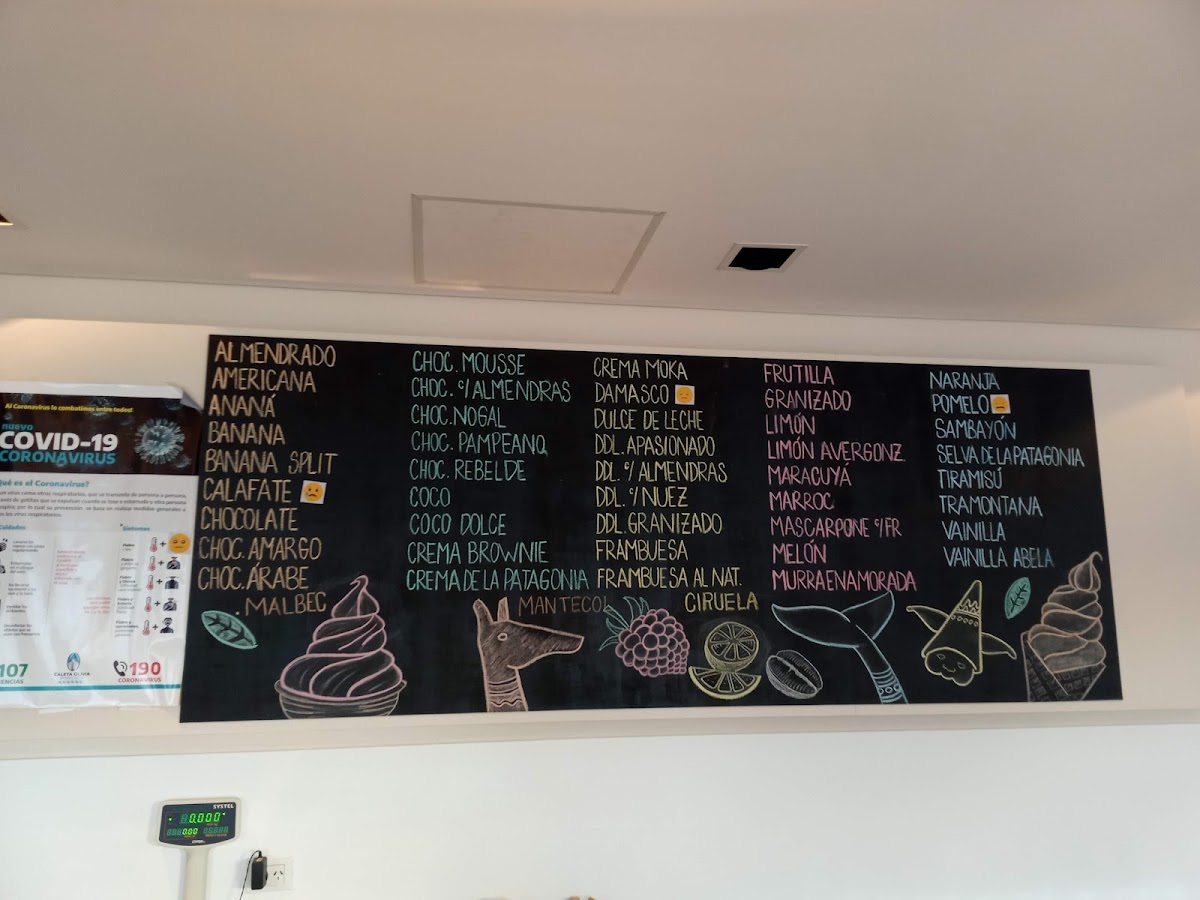 Al Coronavirus lo combatimos entre todos!
nuevo
COVID-19
CORONAVIRUS
Qué es el Coronavirus?
Cuidados
Síntomas
107
CALETA OLIVIA
190
CORONAVIRUS
ALMENDRADO
AMERICANA
ANANÁ
BANANA
BANANA SPLIT
CALAFATE
CHOCOLATE
CHOC. AMARGO
CHOC. ÁRABE
. MALBEC
CHOC. MOUSSE
CHOC. c/ALMENDRAS
CHOC. NOGAL
CHOC. PAMPEANO
CHOC. REBELDE
COCO
COCO DOLCE
CREMA BROWNIE
CREMA DE LA PATAGONIA
MANTECOL
CREMA MOKA
DAMASCO
DULCE DE LECHE
DDL. APASIONADO
DDL. c/ALMENDRAS
DDL. c/NUEZ
DDL. GRANIZADO
FRAMBUESA
FRAMBUESA AL NAT.
CIRUELA
FRUTILLA
GRANIZADO
LIMÓN
LIMÓN AVERGONZ.
MARACUYÁ
MARROC
MASCARPONE c/FR
MELÓN
MURRA ENAMORADA
NARANJA
POMELO
SAMBAYÓN
SELVA DE LA PATAGONIA
TIRAMISÚ
TRAMONTANA
VAINILLA
VAINILLA ABELA
SYSTEL
0.000
0.00